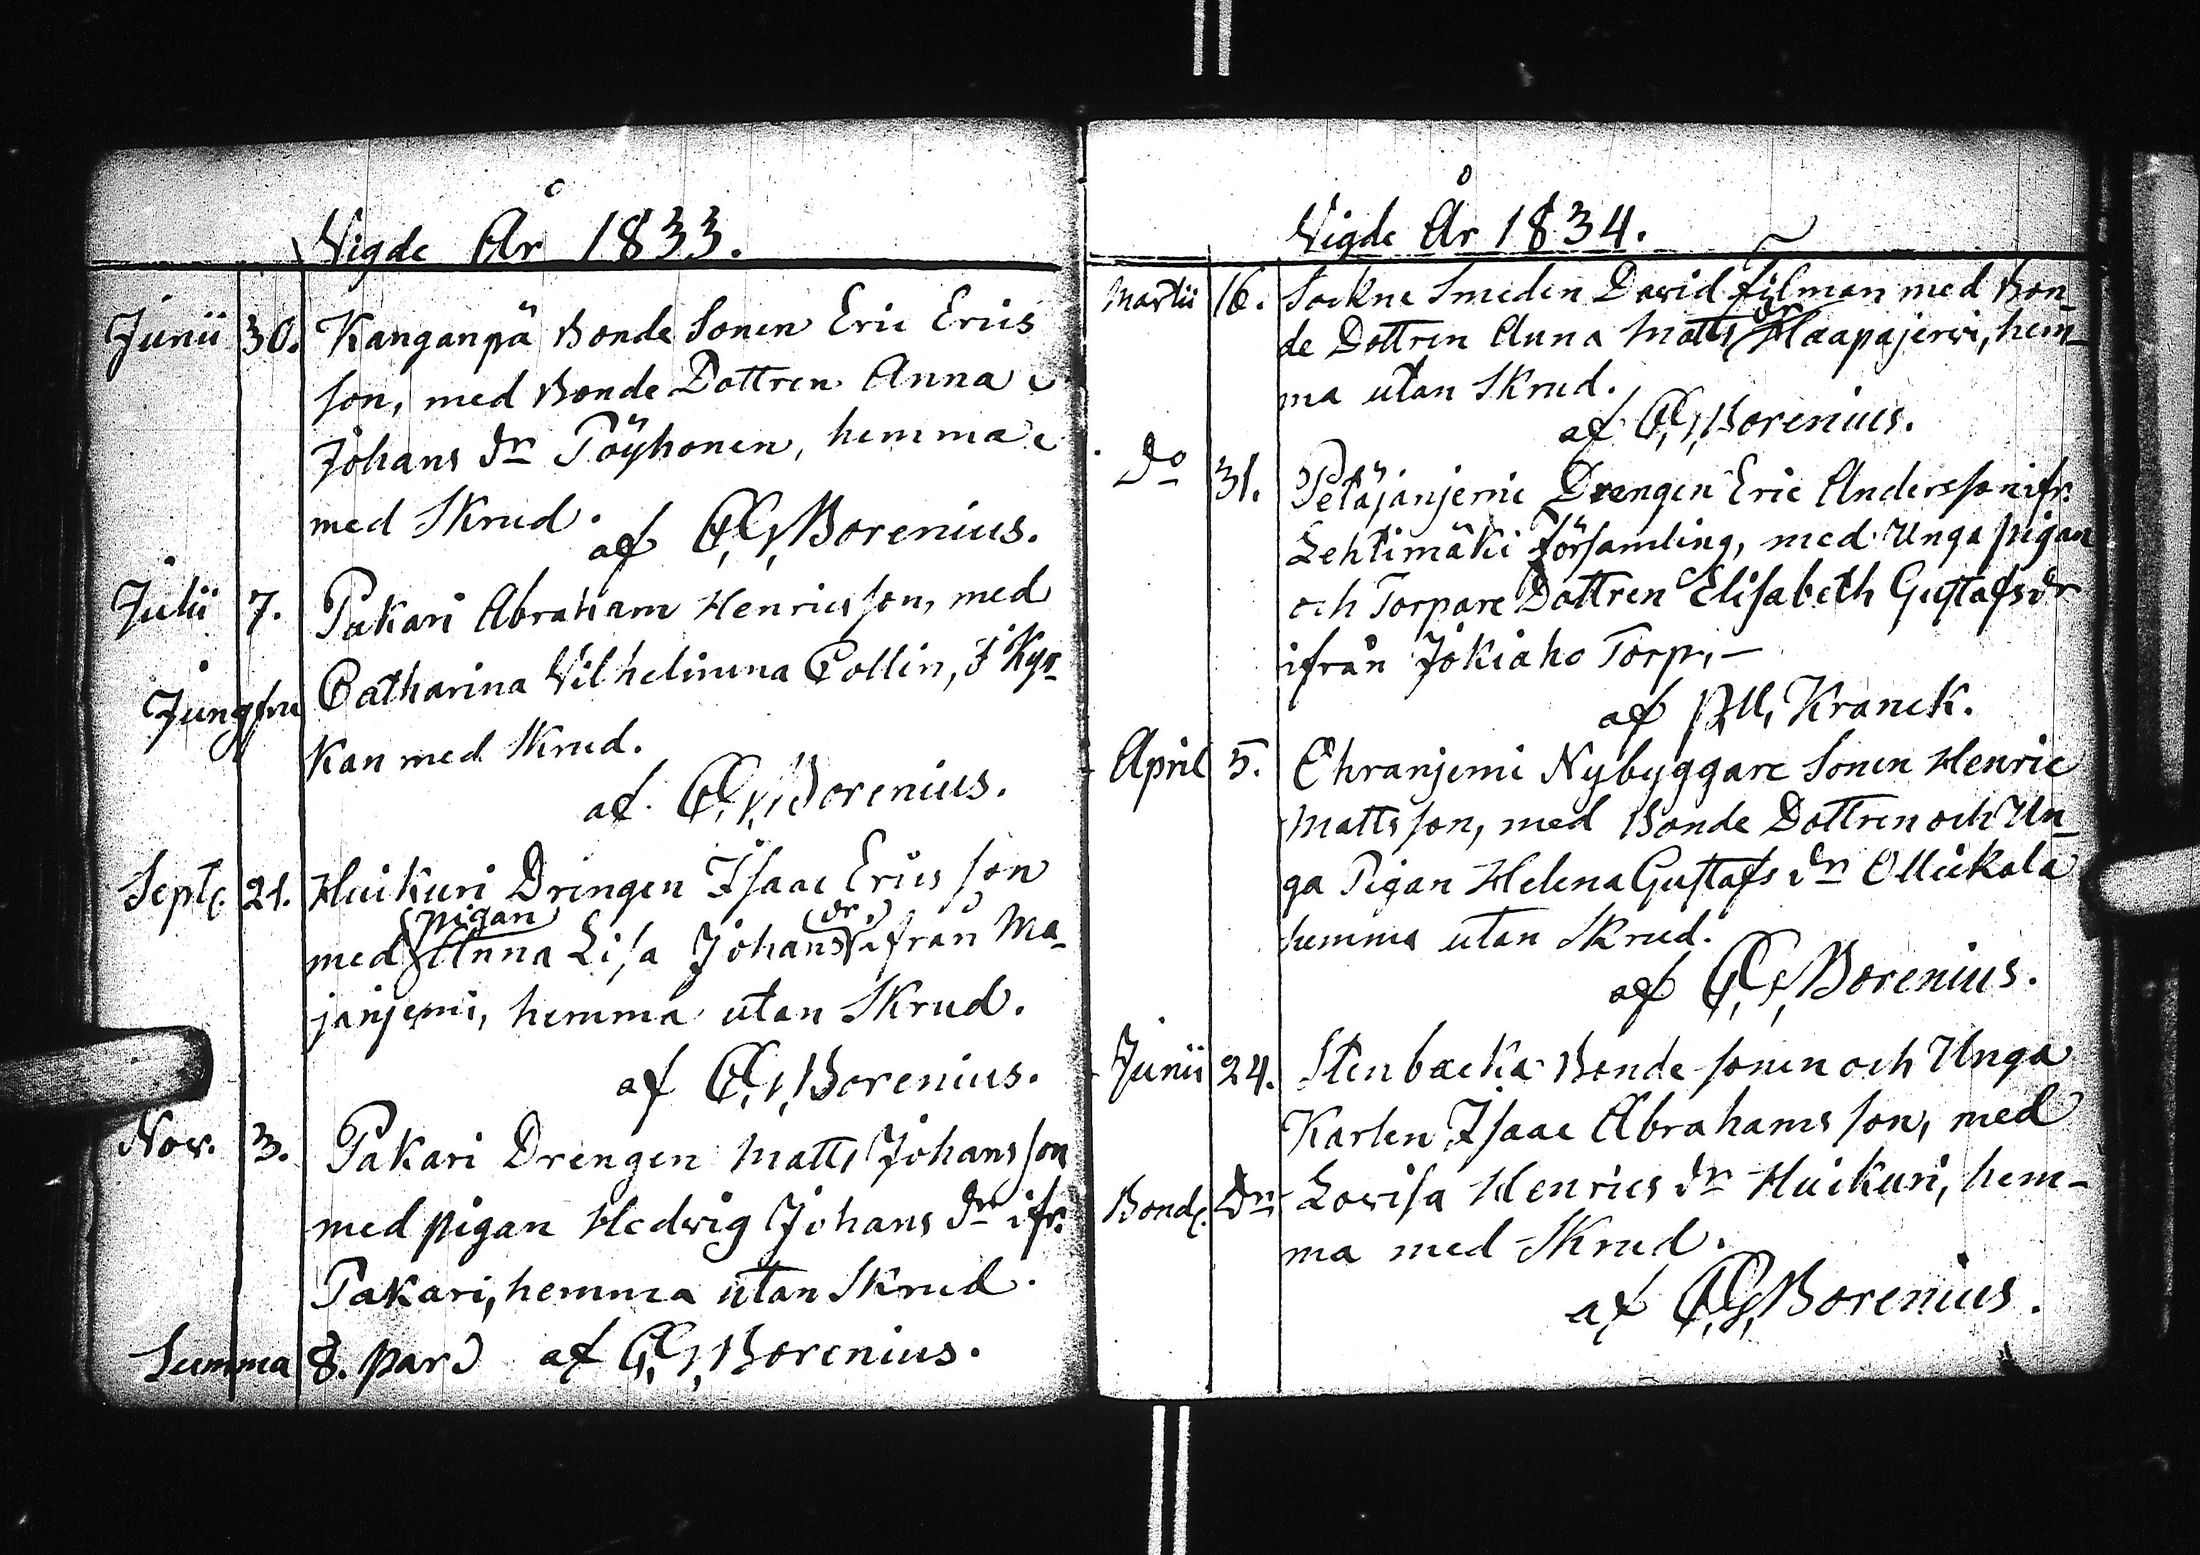 Vigde År 1833.
Junii 30. Kanganpä Bonde Sonen Eric Erics
son, med Bonde Dottren Anna
Johans dr Pöyhonen, hemma
med Skrud.
af C.G. Borenius.
Julii 7. Pakari Abraham Henricsson, med
Jungfru Catharina Vilhelmina Collin, i Kyr-
kan med Skrud.
af C.G. Borenius.
Septe. 21. Huikuri Drengen Isaac Ericsson
med pigan Anna Lisa Johans dr, ifrån Ma-
janjemi, hemma utan Skrud.
af C.G. Borenius.
Nov. 3. Pakari Drengen Matts Johansson
med pigan Hedvig Johans dr ifr.
Pakari, hemma utan Skrud.
Summa 8. par af C.G. Borenius.
Vigde År 1834.
Martii 16. Sockne Smeden David Filman med Bon-
de Dottren Anna Matts dr Haapajervi, hem-
ma utan Skrud.
af C.G. Borenius.
Do 31. Petäjänjemi Drengen Eric Andersson ifr.
Lehtimäki Församling, med Unga pigan
och Torpare Dottren Elisabeth Gustafsdr
ifrån Jokiaho Torp, –
af Kranck.
April 5. Ehranjemi Nybyggare Sonen Henric
Mattsson, med Bonde Dottren och Un-
ga Pigan Helena Gustafs dr Ollikala
hemma utan Skrud.
af C.G. Borenius.
Junii 24. Stenbacka Bonde sonen och Unga
Karlen Isaac Abrahamsson, med
Bonde. Dr Lovisa Henrics dr Huikuri, hem-
ma med Skrud.
af C.G. Borenius.